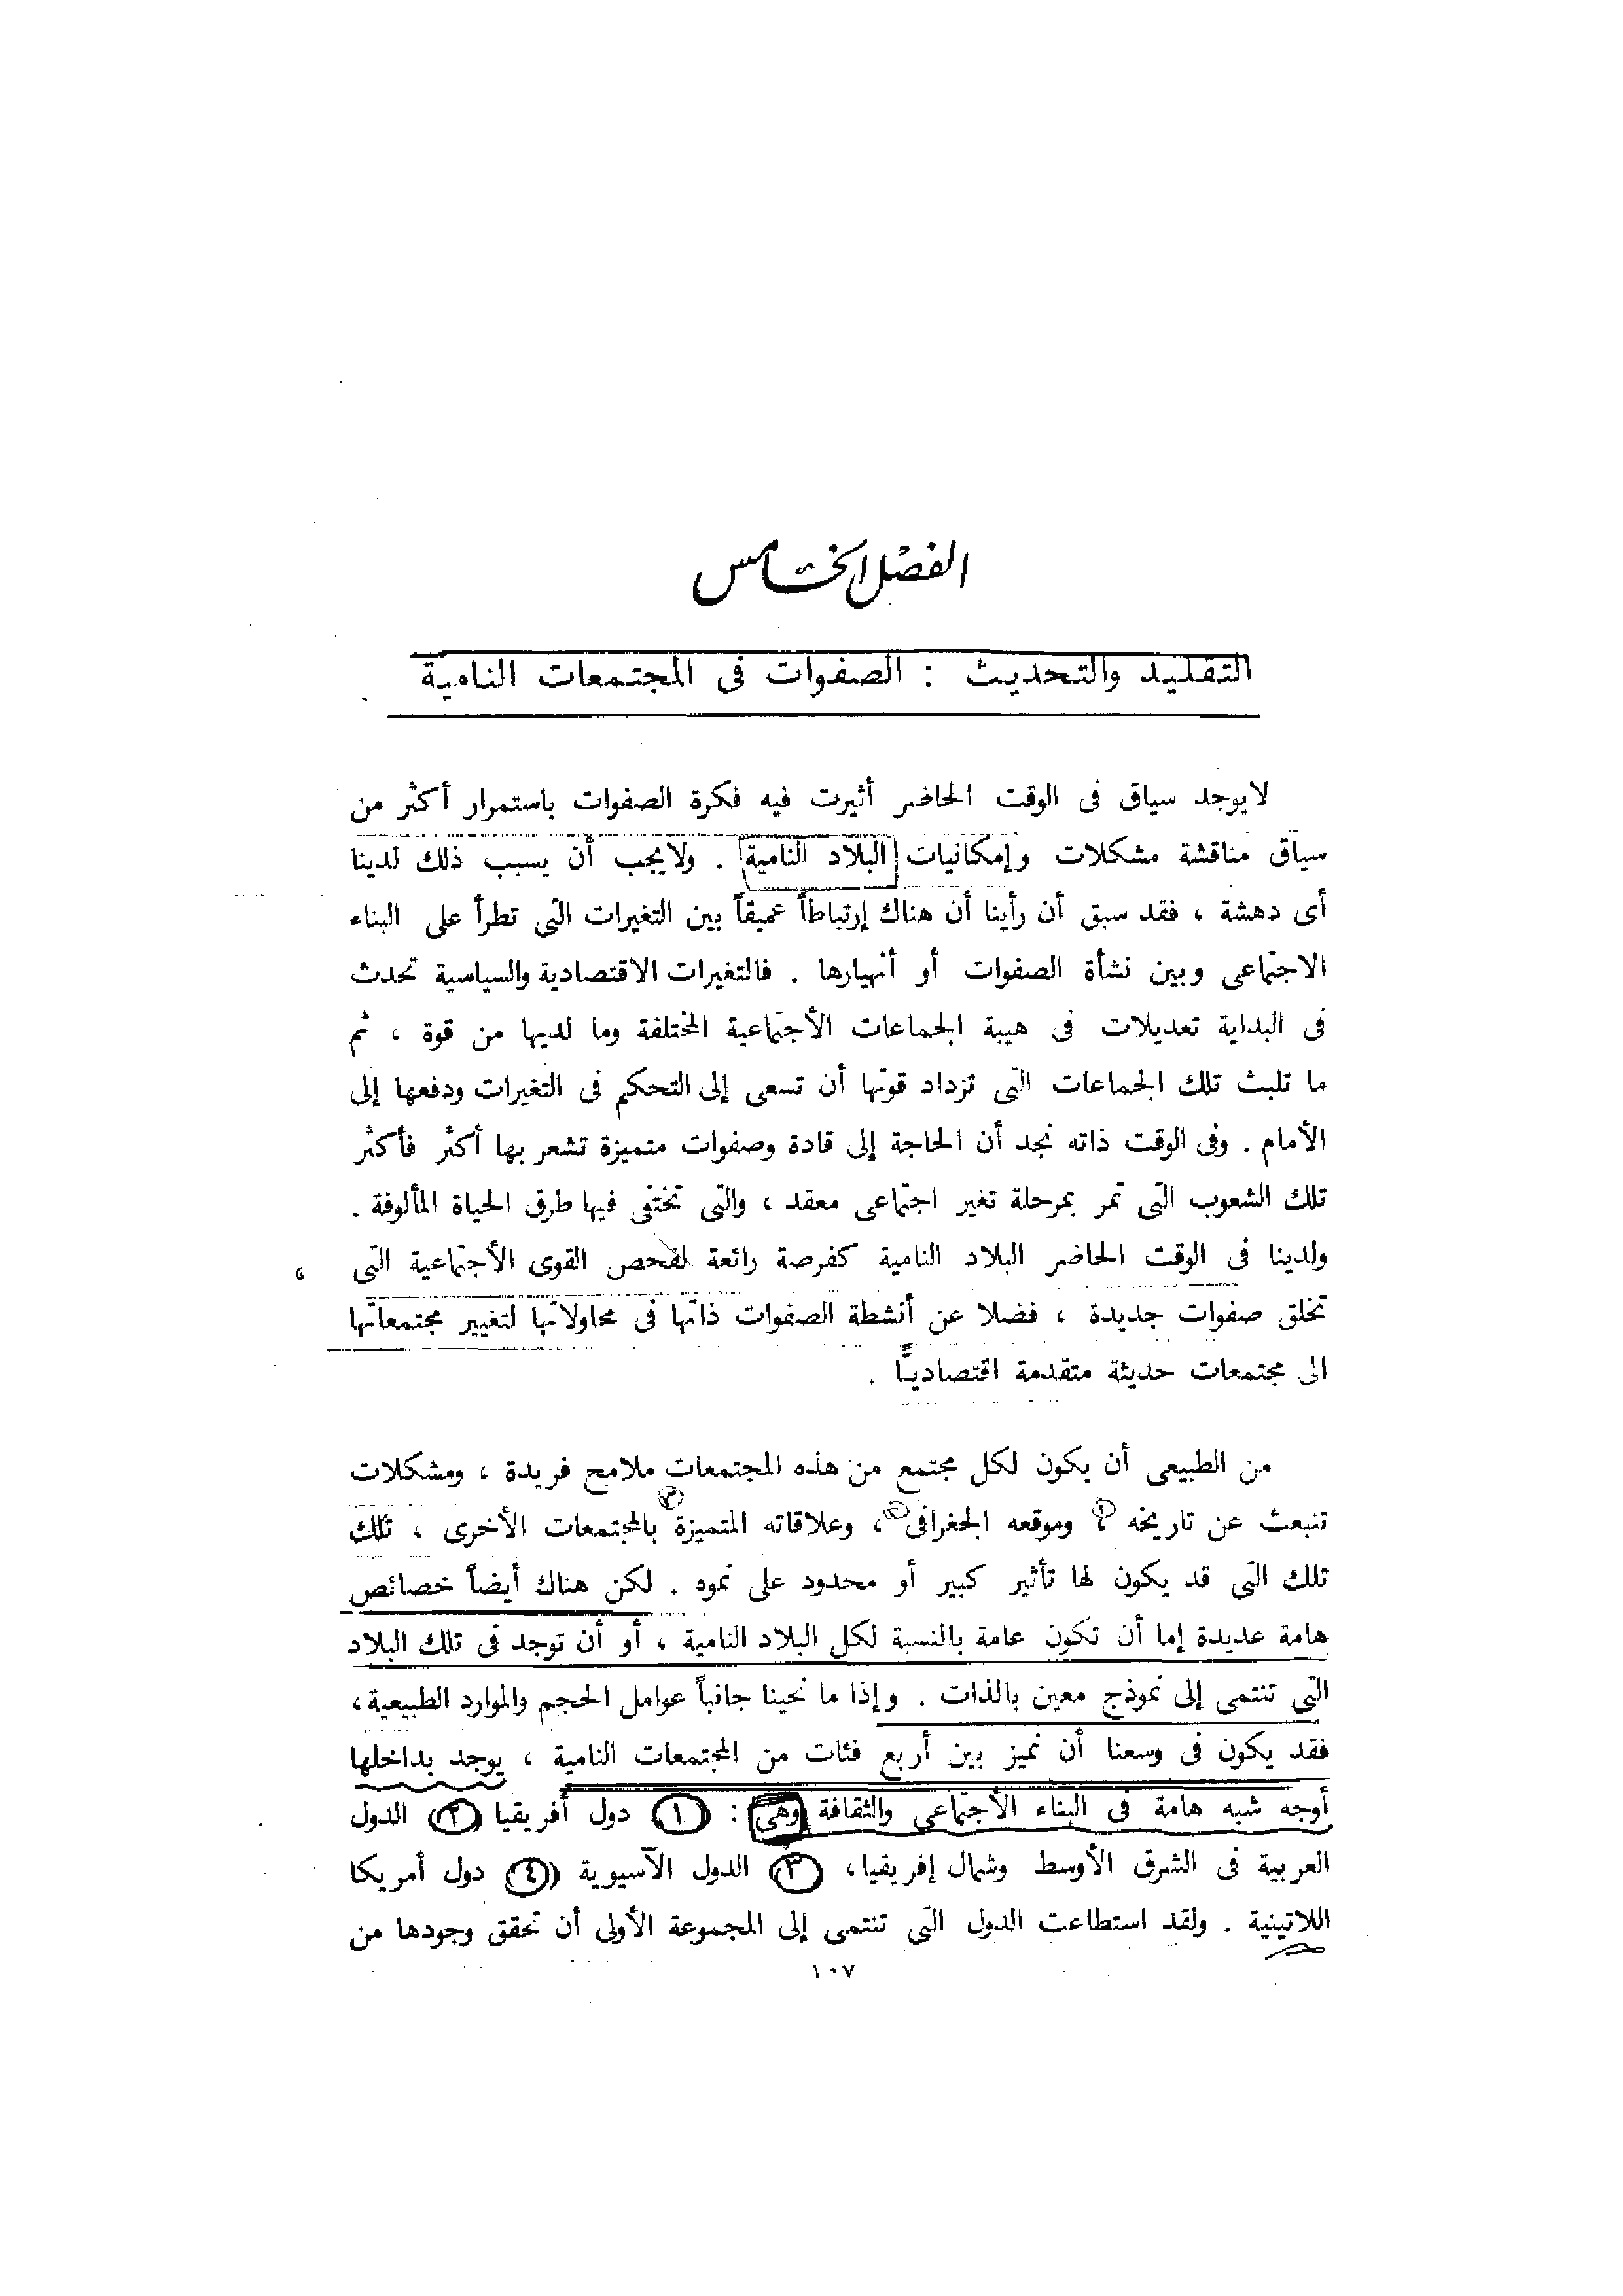 الفصل الخامس
التقليد والتحديث : الصفوات فى المجتمعات النامية
لايوجد سياق فى الوقت الحاضر أثيرت فيه فكرة الصفوات باستمرار أكثر من
سياق مناقشة مشكلات وإمكانيات البلاد النامية . ولايجب أن يسبب ذلك لدينا
أى دهشة ، فقد سبق أن رأينا أن هناك إرتباطاً عميقاً بين التغيرات التى تطرأ على البناء
الاجتماعى وبين نشأة الصفوات أو أنهيارها . فالتغيرات الاقتصادية والسياسية تحدث
فى البداية تعديلات فى هيبة الجماعات الأجتماعية المختلفة وما لديها من قوة ، ثم
ما تلبث تلك الجماعات التى تزداد قوتها أن تسعى إلى التحكم فى التغيرات ودفعها إلى
الأمام . وفى الوقت ذاته نجد أن الحاجة إلى قادة وصفوات متميزة تشعر بها أكثر فأكثر
تلك الشعوب التى تمر بمرحلة تغير اجتماعى معقد ، والتى تختفى فيها طرق الحياة المألوفة .
ولدينا فى الوقت الحاضر البلاد النامية كفرصة رائعة لفحص القوى الأجتماعية التى
تخلق صفوات جديدة ، فضلا عن أنشطة الصفوات ذاتها فى محاولاتها لتغيير مجتمعاتها
الى مجتمعات حديثة متقدمة اقتصادياً .
من الطبيعى أن يكون لكل مجتمع من هذه المجتمعات ملامح فريدة ، ومشكلات
تنبعث عن تاريخه ، وموقعه الجغرافى ، وعلاقاته المتميزة بالمجتمعات الأخرى ، تلك
تلك التى قد يكون لها تأثير كبير أو محدود على نموه . لكن هناك أيضاً خصائص
هامة عديدة إما أن تكون عامة بالنسبة لكل البلاد النامية ، أو أن توجد فى تلك البلاد
التى تنتمى إلى نموذج معين بالذات . وإذا ما نحينا جانباً عوامل الحجم والموارد الطبيعية ،
فقد يكون فى وسعنا أن نميز بين أربع فئات من المجتمعات النامية ، يوجد بداخلها
أوجه شبه هامة فى البناء الأجتماعى والثقافة وهى : (١) دول أفريقيا (٢) الدول
العربية فى الشرق الأوسط وشمال إفريقيا، (٣) الدول الآسيوية (٤) دول أمريكا
اللاتينية . ولقد استطاعت الدول التى تنتمى إلى المجموعة الأولى أن تحقق وجودها من
١٠٧